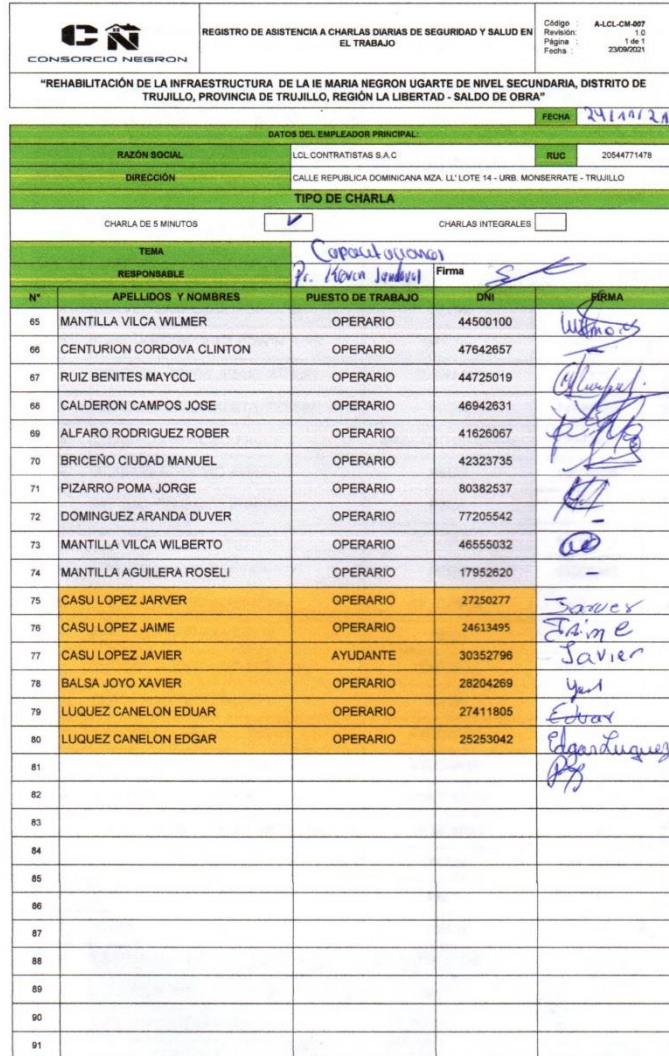 CN
CONSORCIO NEGRON
REGISTRO DE ASISTENCIA A CHARLAS DIARIAS DE SEGURIDAD Y SALUD EN
EL TRABAJO
Código : A-LCL-CM-007
Revisión: 1.0
Página : 1 de 1
Fecha : 23/09/2021
“REHABILITACIÓN DE LA INFRAESTRUCTURA DE LA IE MARIA NEGRON UGARTE DE NIVEL SECUNDARIA, DISTRITO DE
TRUJILLO, PROVINCIA DE TRUJILLO, REGIÓN LA LIBERTAD - SALDO DE OBRA”
FECHA
DATOS DEL EMPLEADOR PRINCIPAL:
RAZÓN SOCIAL LCL CONTRATISTAS S.A.C RUC 20544771478
DIRECCIÓN CALLE REPUBLICA DOMINICANA MZA. LL' LOTE 14 - URB. MONSERRATE - TRUJILLO
TIPO DE CHARLA
CHARLA DE 5 MINUTOS CHARLAS INTEGRALES
TEMA
RESPONSABLE Kevin Sandoval Firma
N° APELLIDOS Y NOMBRES PUESTO DE TRABAJO DNI FIRMA
65 MANTILLA VILCA WILMER OPERARIO 44500100
66 CENTURION CORDOVA CLINTON OPERARIO 47642657 –
67 RUIZ BENITES MAYCOL OPERARIO 44725019
68 CALDERON CAMPOS JOSE OPERARIO 46942631
69 ALFARO RODRIGUEZ ROBER OPERARIO 41626067
70 BRICEÑO CIUDAD MANUEL OPERARIO 42323735
71 PIZARRO POMA JORGE OPERARIO 80382537
72 DOMINGUEZ ARANDA DUVER OPERARIO 77205542 –
73 MANTILLA VILCA WILBERTO OPERARIO 46555032
74 MANTILLA AGUILERA ROSELI OPERARIO 17952620 –
75 CASU LOPEZ JARVER OPERARIO 27250277 Jarver
76 CASU LOPEZ JAIME OPERARIO 24613495 Jaime
77 CASU LOPEZ JAVIER AYUDANTE 30352796 Javier
78 BALSA JOYO XAVIER OPERARIO 28204269
79 LUQUEZ CANELON EDUAR OPERARIO 27411805 Eduar
80 LUQUEZ CANELON EDGAR OPERARIO 25253042 Edgar Luquez
81
82
83
84
85
86
87
88
89
90
91